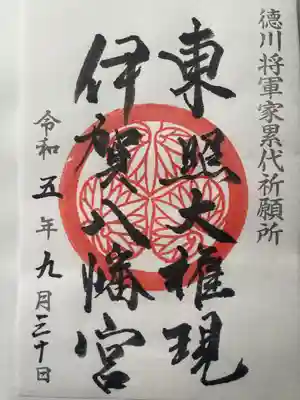 徳川将軍家累代祈願所
東照大権現
伊賀八幡宮
令和五年九月三十日